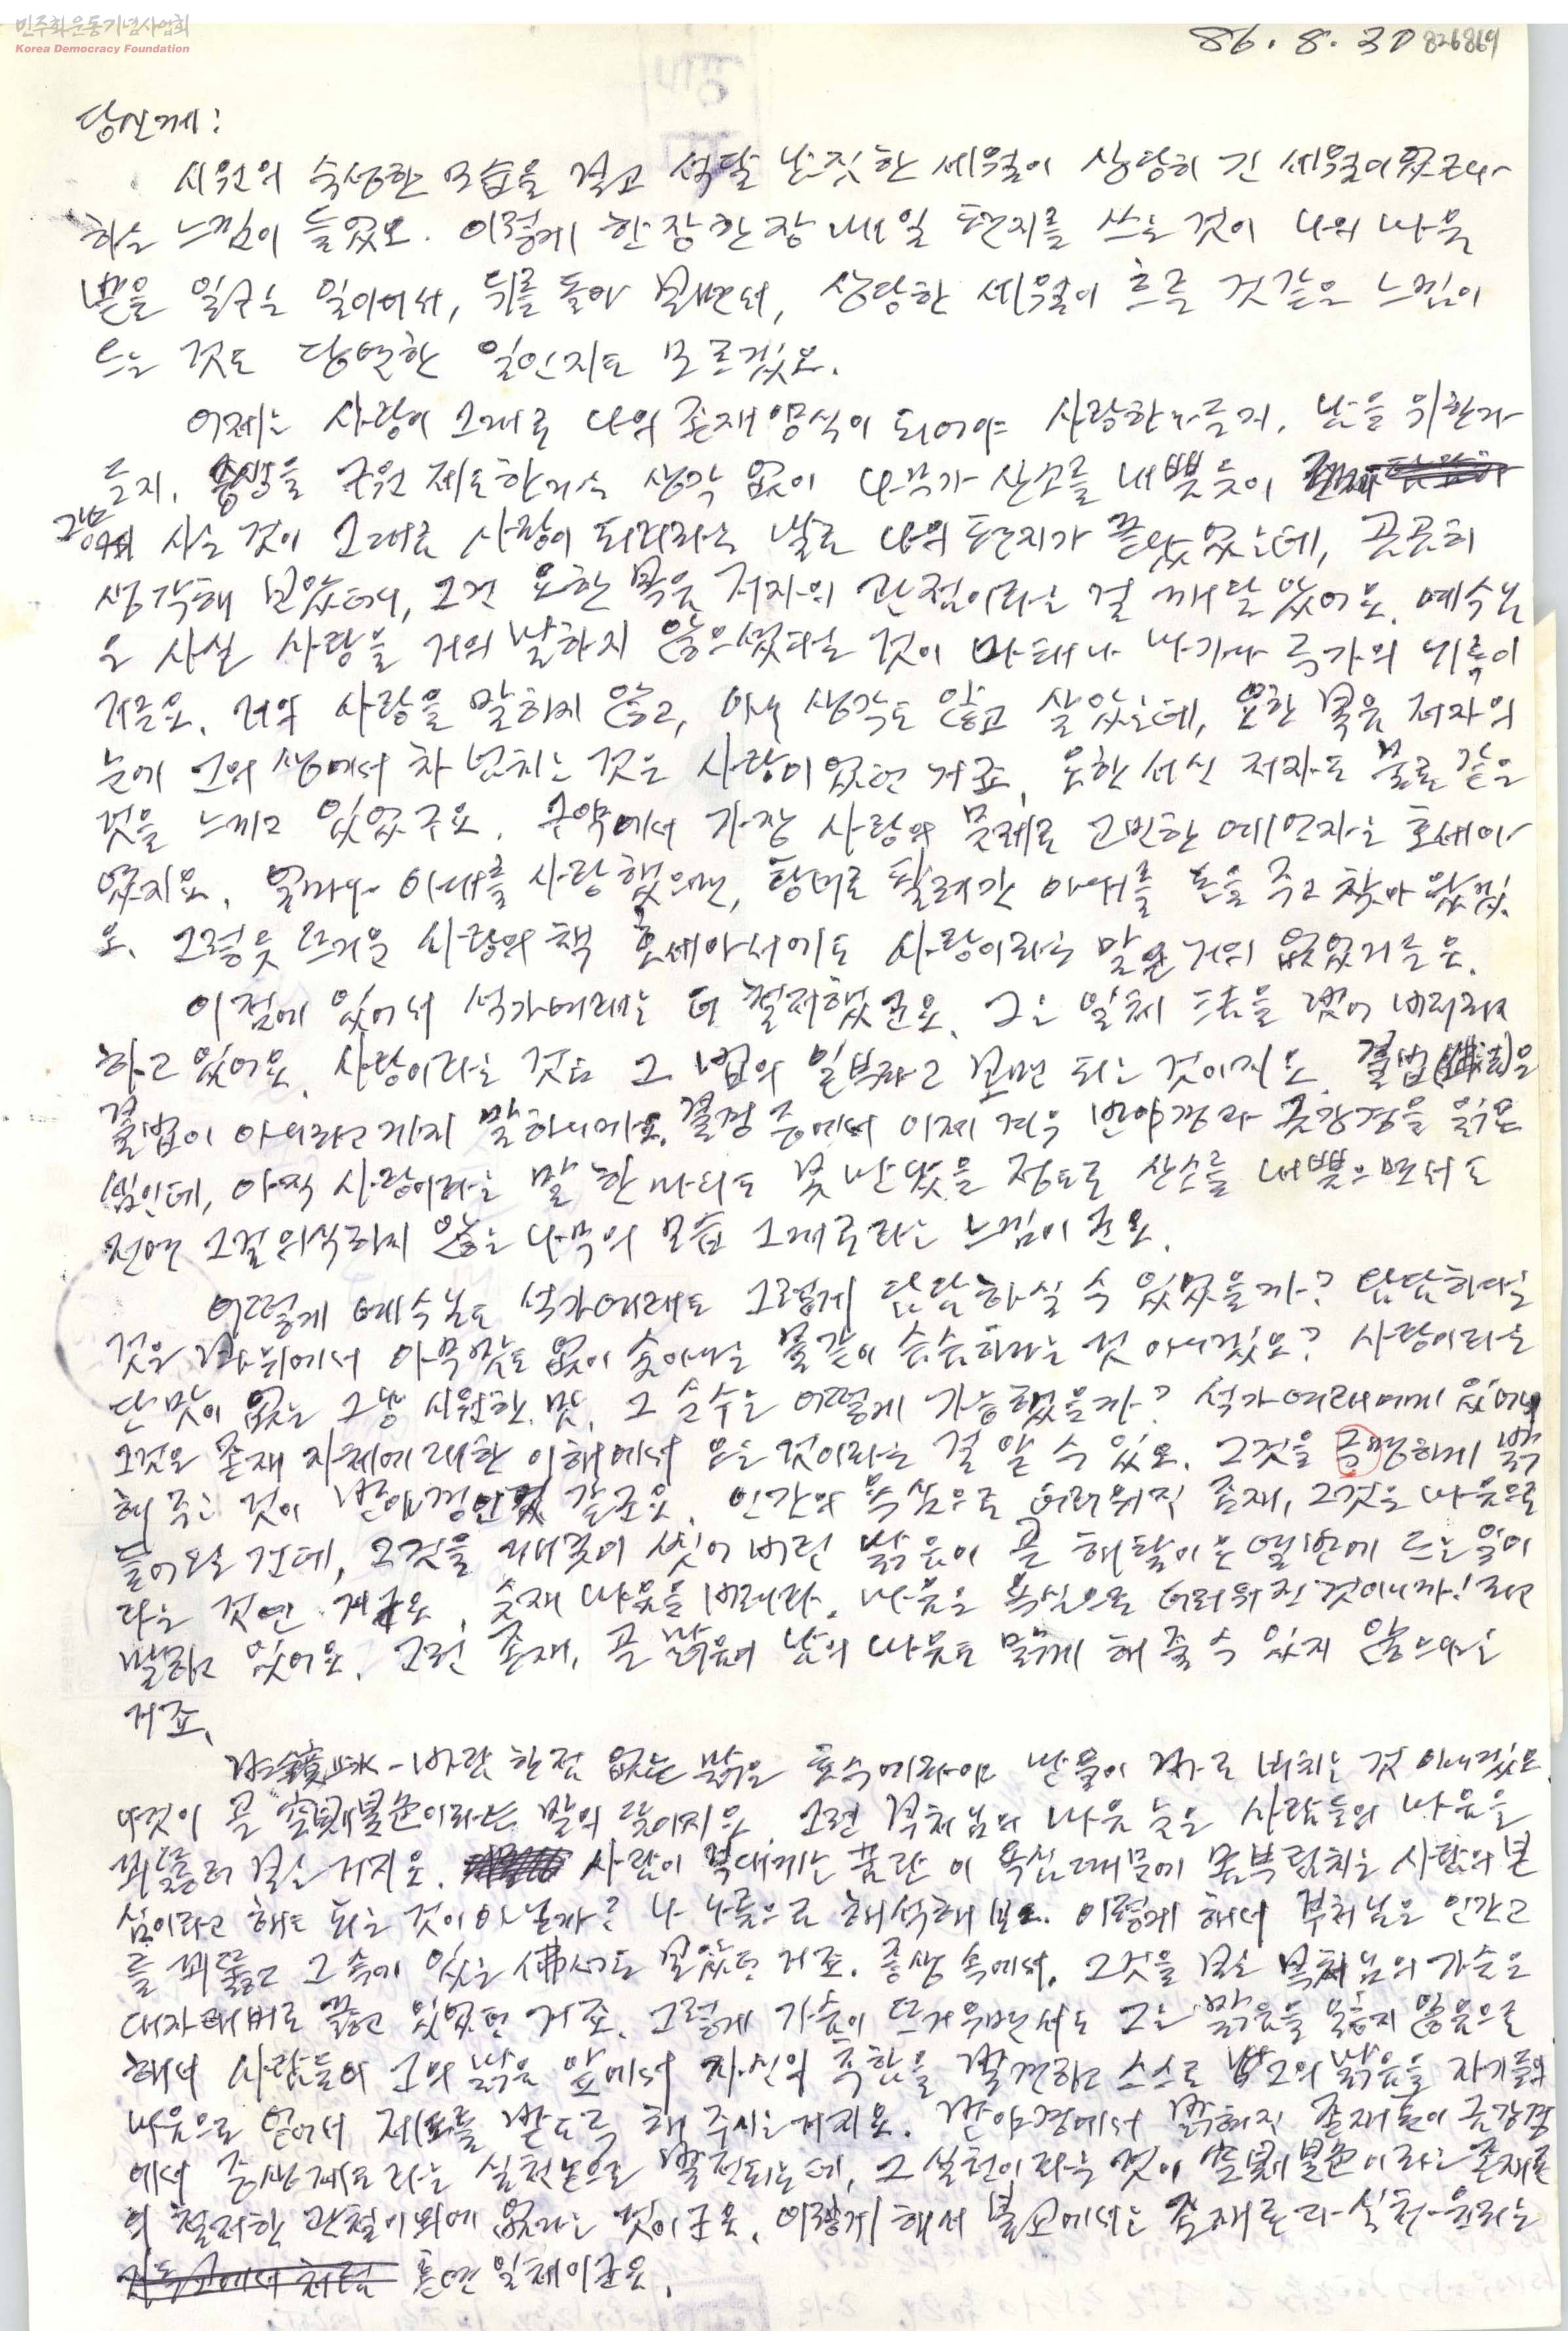 민주화운동기념사업회
Korea Democracy Foundation
86. 8. 30 826869
당신께:
시원의 숙성한 모습을 보고 석달 남짓한 세월이 상당히 긴 세월이었구나
하는 느낌이 들었오. 이렇게 한장 한장 매일 편지를 쓰는 것이 나의 마음
밭을 일구는 일이어서, 뒤를 돌아 보면서, 상당한 세월이 흐른 것같은 느낌이
드는 것도 당연한 일인지도 모르겠오.
어제는 사랑이 그대로 나의 존재양식이 되어야 사랑한다든지, 남을 위한다
든지, 중생을 구원 제도한다는 생각 없이 나무가 산소를 내뿜듯이
사는 것이 그대로 사랑이 되리라는 말로 나의 편지가 끝났었는데, 곰곰히
생각해 보았더니, 그건 요한 복음 저자의 관점이라는 걸 깨달았어요. 예수님
은 사실 사랑을 거의 말하지 않으셨다는 것이 마태나 마가나 누가의
거든요. 거의 사랑을 말하지 않고, 아니 생각도 않고 살았는데, 요한 복음 저자의
눈에 그의 생에서 차 넘치는 것은 사랑이었던 거죠. 요한 서신 저자도 물론 같은
것을 느끼고 있었구요. 구약에서 가장 사랑의 문제로 고민한 예언자는 호세아
였지요. 얼마나 아내를 사랑했으면, 팔려간 아내를 돈을 주고 찾아 왔겠
오. 그렇듯 뜨거운 사랑의 책 호세아서에도 사랑이라는 말은 거의 없었거든요.
이점에 있어서 석가여래는 더 철저했군요. 그는 일체 法을 벗어 버리려
하고 있어요. 사랑이라는 것도 그 법의 일부라고 보면 되는 것이지요. 불법(佛法)은
불법이 아니라고까지 말하니까요. 불경 중에서 이제 겨우 반야경과 금강경을 읽은
셈인데, 아직 사랑이라는 말 한마디도 못 만났을 정도로 산소를 내뿜으면서도
전연 그걸 의식하지 않는 나무의 모습 그대로라는 느낌이군요.
어떻게 예수님도 석가여래도 그렇게 담담하실 수 있었을까? 담담하다는
것은 바위에서 아무 맛도 없이 솟아나는 물같이 슴슴하다는 것 아니겠오? 사랑이라는
단 맛이 없는 그냥 시원한 맛. 그 순수는 어떻게 가능했을까? 석가여래에게 있어서
그것은 존재 자체에 대한 이해에서 오는 것이라는 걸 알 수 있오. 그것을 극명하게
해 주는 것이 반야경인 것 같군요. 인간의 욕심으로 더러워진 존재, 그것은 마음으로
들어오는 건데, 그것을 깨끗이 씻어 버린 맑음이 곧 해탈이요 열반에 드는 일이
라는 것 군요. 존재 마음을 버려라. 마음은 욕심으로 더러워진 것이니까! 라고
말하고 있어요. 그런 존재, 곧 맑음이 남의 마음도 맑게 해 줄 수 있지 않으냐는
거죠.
明鏡止水 - 바람 한점 없는 맑은 호수에라야 만물이 바로 비치는 것 아니겠오.
이것이 곧 空則是色이라는 말의 뜻이지요. 그런 부처님의 마음 눈은 사람들의 마음을
꿰뚫어 보는 거지요. 사람이 번뇌 이 욕심때문에 몸부림치는 사람의 본
심이라고 해도 되는 것이 아닐까? 나 나름으로 해석해 보오. 이렇게 해서 부처님은 인간고
를 꿰뚫고 그 속에 있는 佛心도 보았던 거죠. 중생 속에서. 그것을 보는 부처님의 가슴은
대자대비로 끓고 있었던 거죠. 그렇게 가슴이 뜨거우면서도 그는 맑음을 잃지 않음으로
해서 사람들이 그의 맑음 앞에서 자신의 추함을 발견하고 스스로 그의 맑음을 자기들의
마음으로 얻어서 제도를 받도록 해 주시는거지요. 반야경에서 밝혀진 존재론이 금강경
에서 중생제도라는 실천논으로 발전되는데, 그 실천이라는 것이 이라는 존재론
의 철저한 관철이외에 없다는 것이군요. 이렇게 해서 불교에서는 존재론과 실천 원리는
혼연일체이군요.